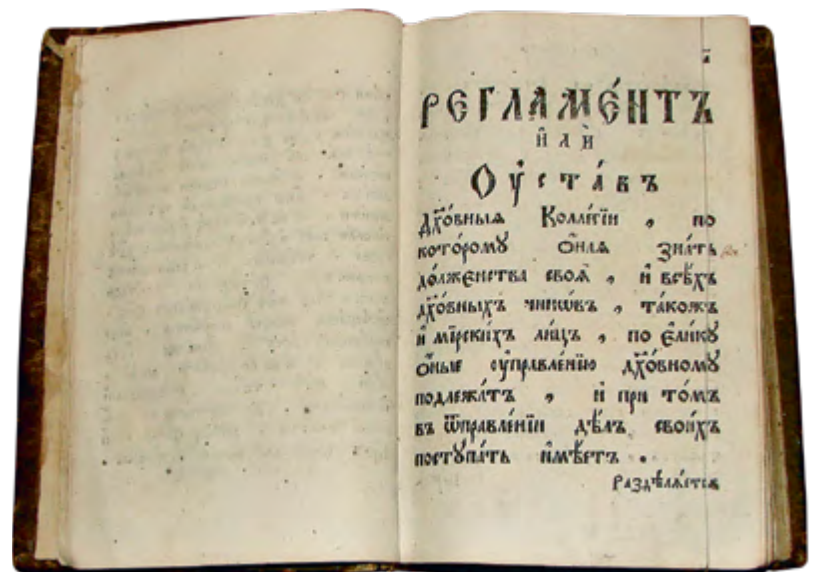 РЕГЛАМЕ́НТЪ
и҆лѝ
Оу҆ста́въ
Дх҃о́вныѧ Колле́гїи , по
кото́ромꙋ ѻ҆́наѧ зна́ть
до́лженства своѧ̀ , и҆ всѣ́хъ
дх҃о́вныхъ чинѡ́въ , та́кожъ
и҆ мїрски́хъ ли́цъ , по є҆ли́кꙋ
ѻ҆́ные оу҆правле́нїю дх҃о́вномꙋ
подлежа́тъ , и҆ при то́мъ
въ ѿправле́нїи дѣ́лъ свои́хъ
постꙋпа́ть и҆мѣ́етъ .
Раздѣлѧ́етсѧ